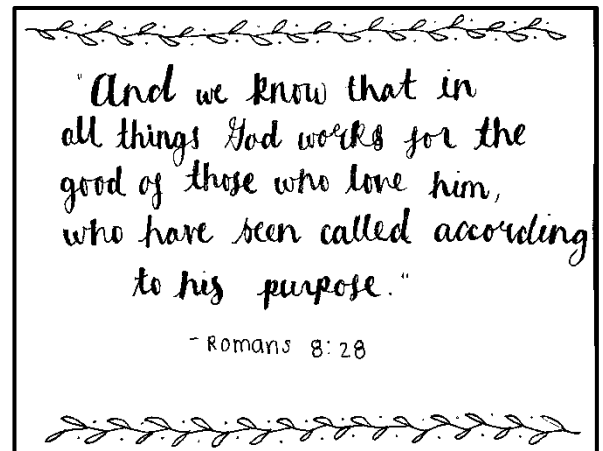 "And we know that in
all things God works for the
good of those who love him,
who have been called according
to his purpose."
- Romans 8:28